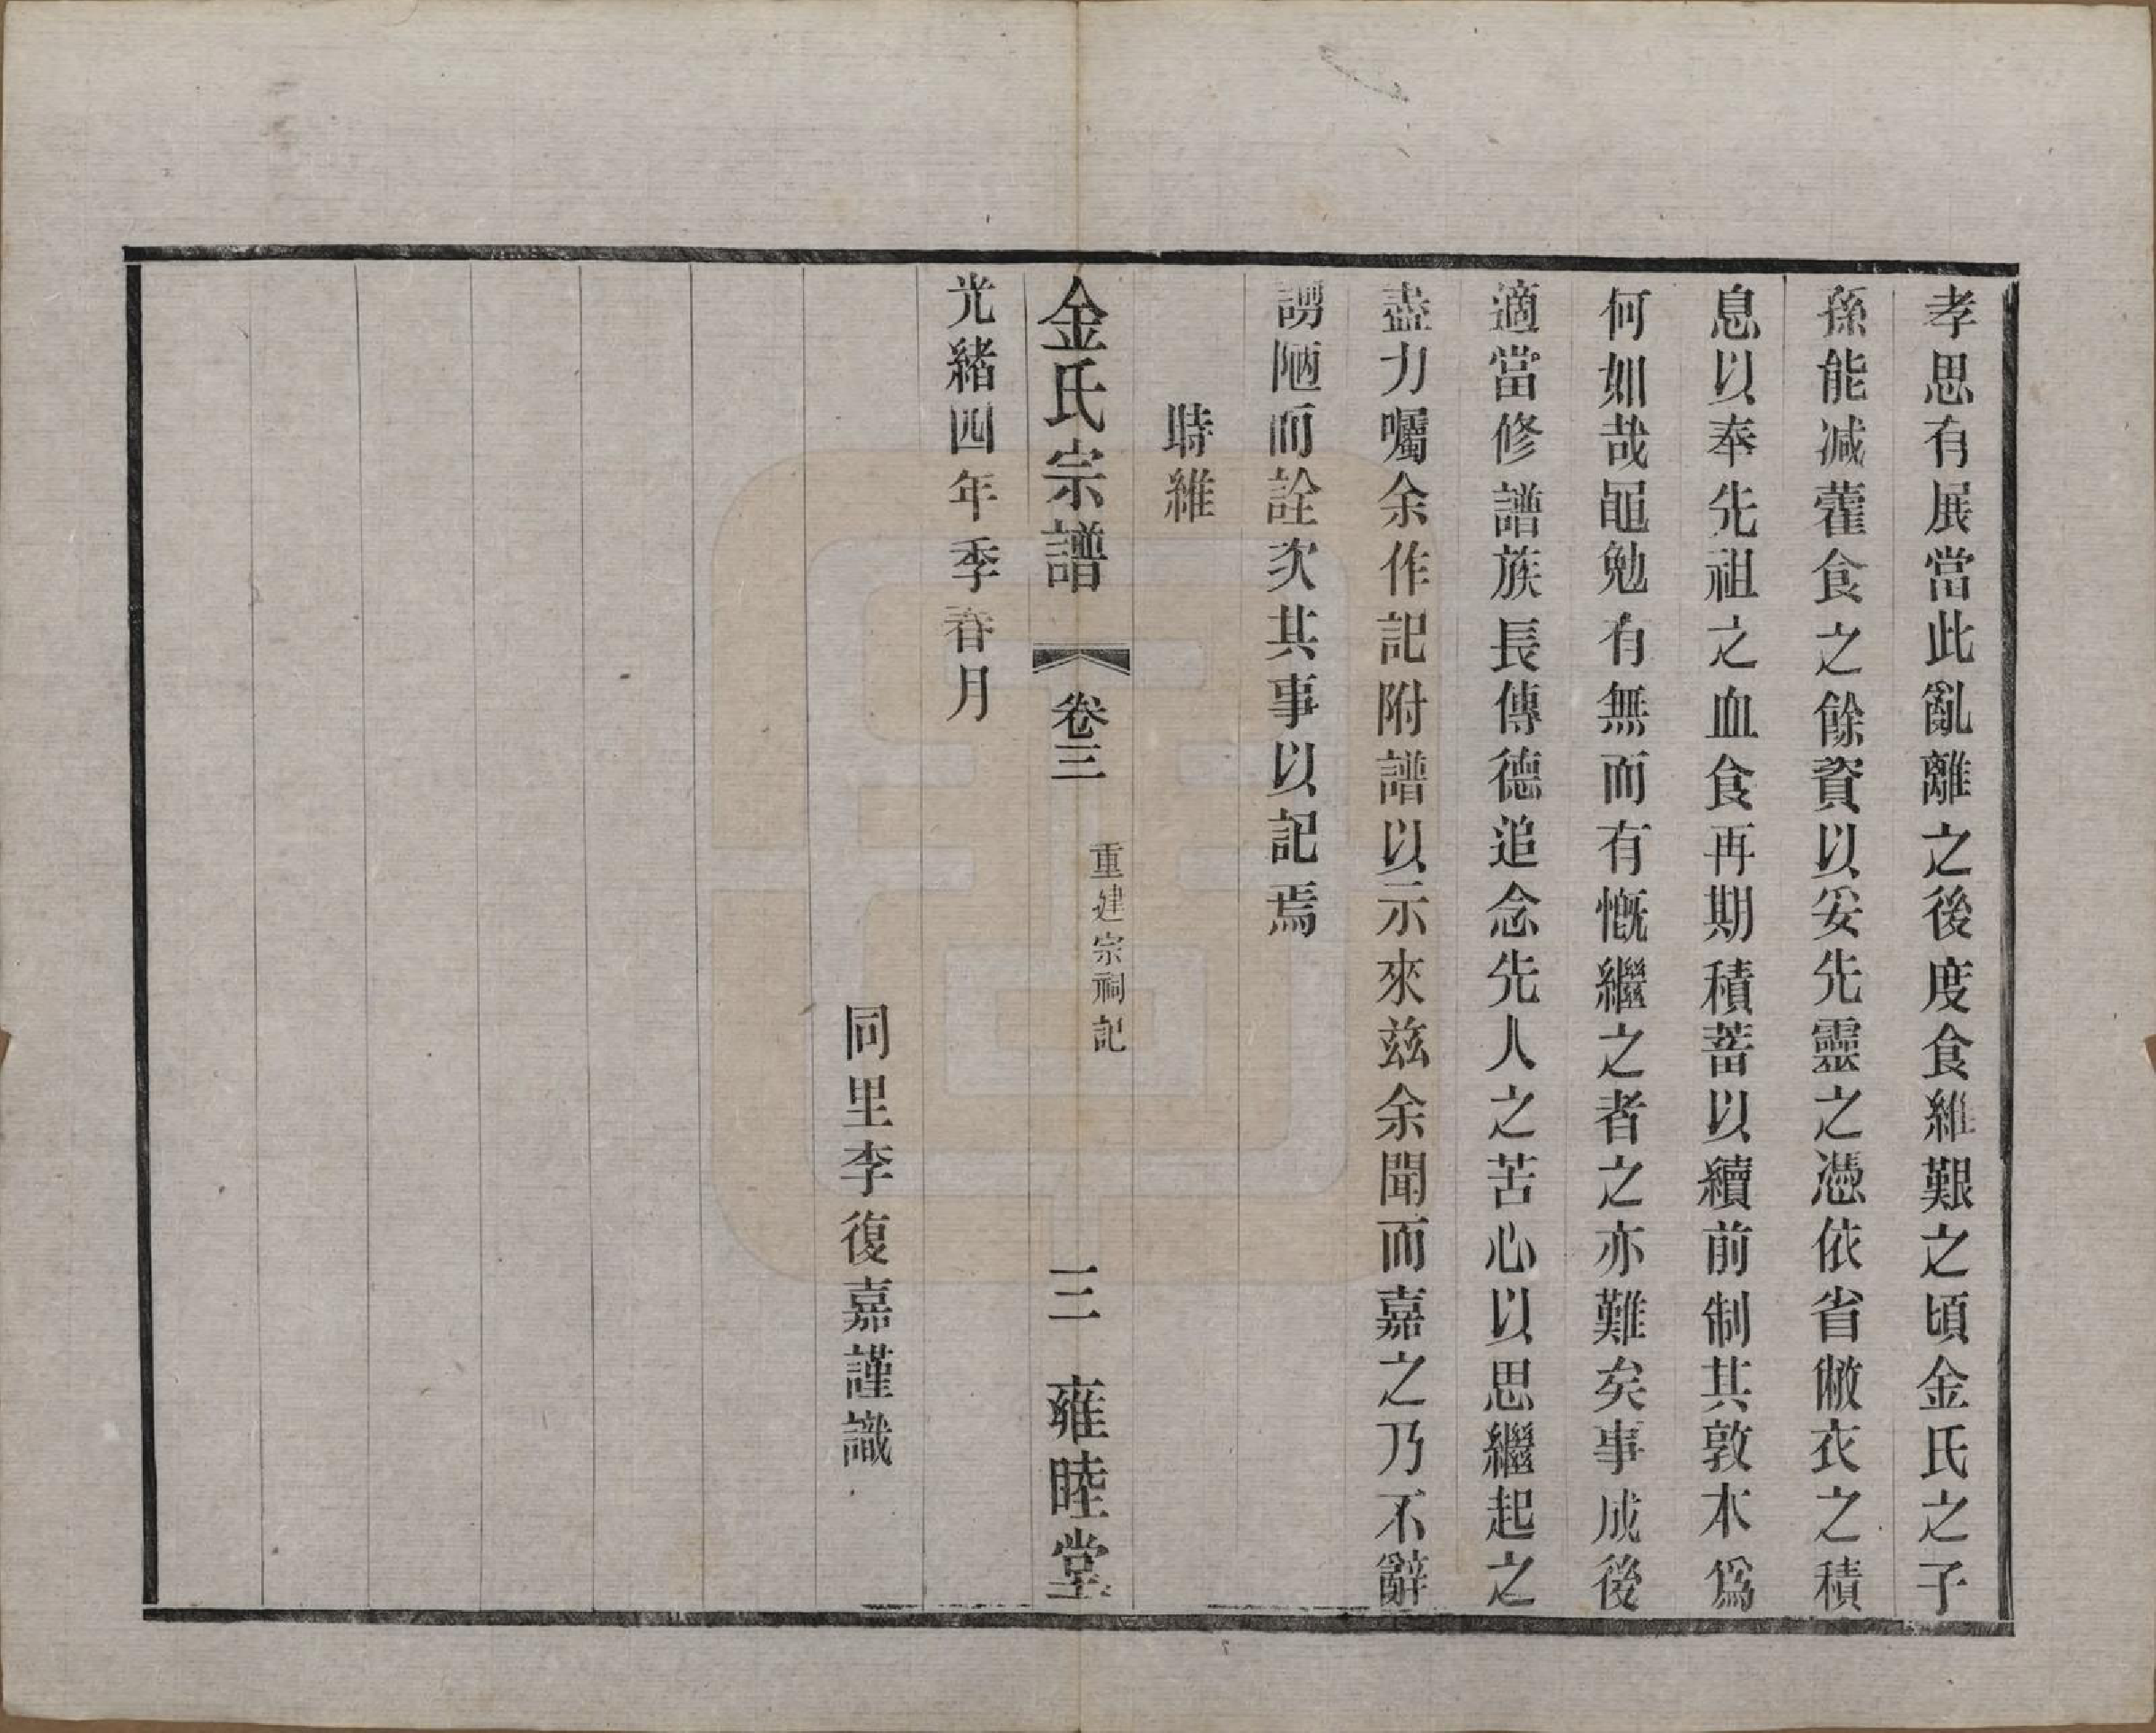 孝思有展當此亂離之後度食維艱之頃金氏之子
孫能减藿食之餘資以妥先靈之憑依省敝衣之積
息以奉先祖之血食再期積蓄以續前制其敦本爲
何如哉黽勉有無而有慨繼之者之亦難矣事成後
適當修譜族長傳德追念先人之苦心以思繼起之
盡力囑余作記附譜以示來兹余聞而嘉之乃不辭
謭陋而詮次其事以記焉
時維
金氏宗譜
卷三
重建宗祠記
三
雍睦堂
光緒四年季春月
同里李復嘉謹識